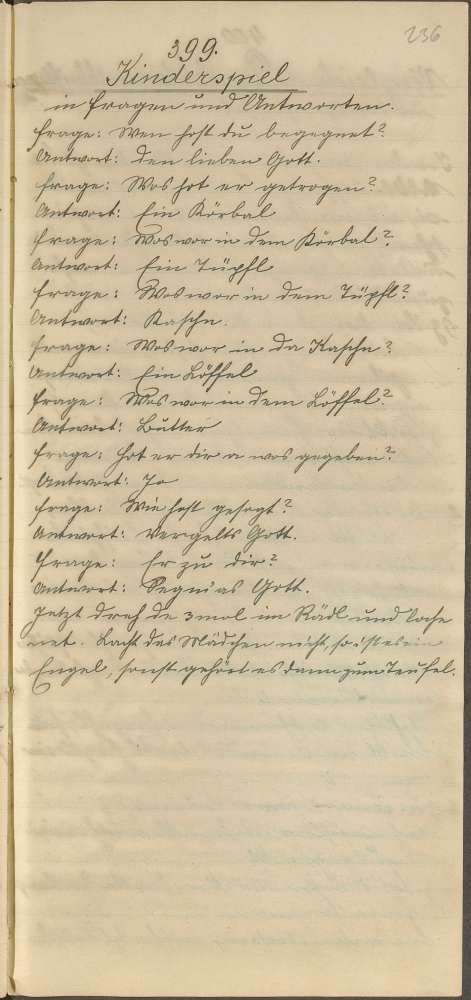 236
399.
Kinderspiel
in Fragen und Antworten.
Frage: Wen host du begegnet?
Antwort: Den lieben Gott.
Frage: Wos hot er getrogen?
Antwort: Ein Körbal
Frage: Wos wor in dem Körbal?
Antwort: Ein Tüpfl
Frage: Wos wor in dem Tüpfl?
Antwort: Kaschn.
Frage: Wos wor in da Kaschn?
Antwort: Ein Löffel
Frage: Wos wor in dem Löffel?
Antwort: Butter
Frage: Hot er dir a wos gegeben?
Antwort: Jo
Frage: Wie host gesogt?
Antwort: Vergelts Gott.
Frage: Er zu dir?
Antwort: Segni as Gott.
Jetzt dreh de 3mol im Rädl und loche
net. Lacht das Mädchen nicht, so ist es ein
Engel, sonst gehört es dann zum Teufel.